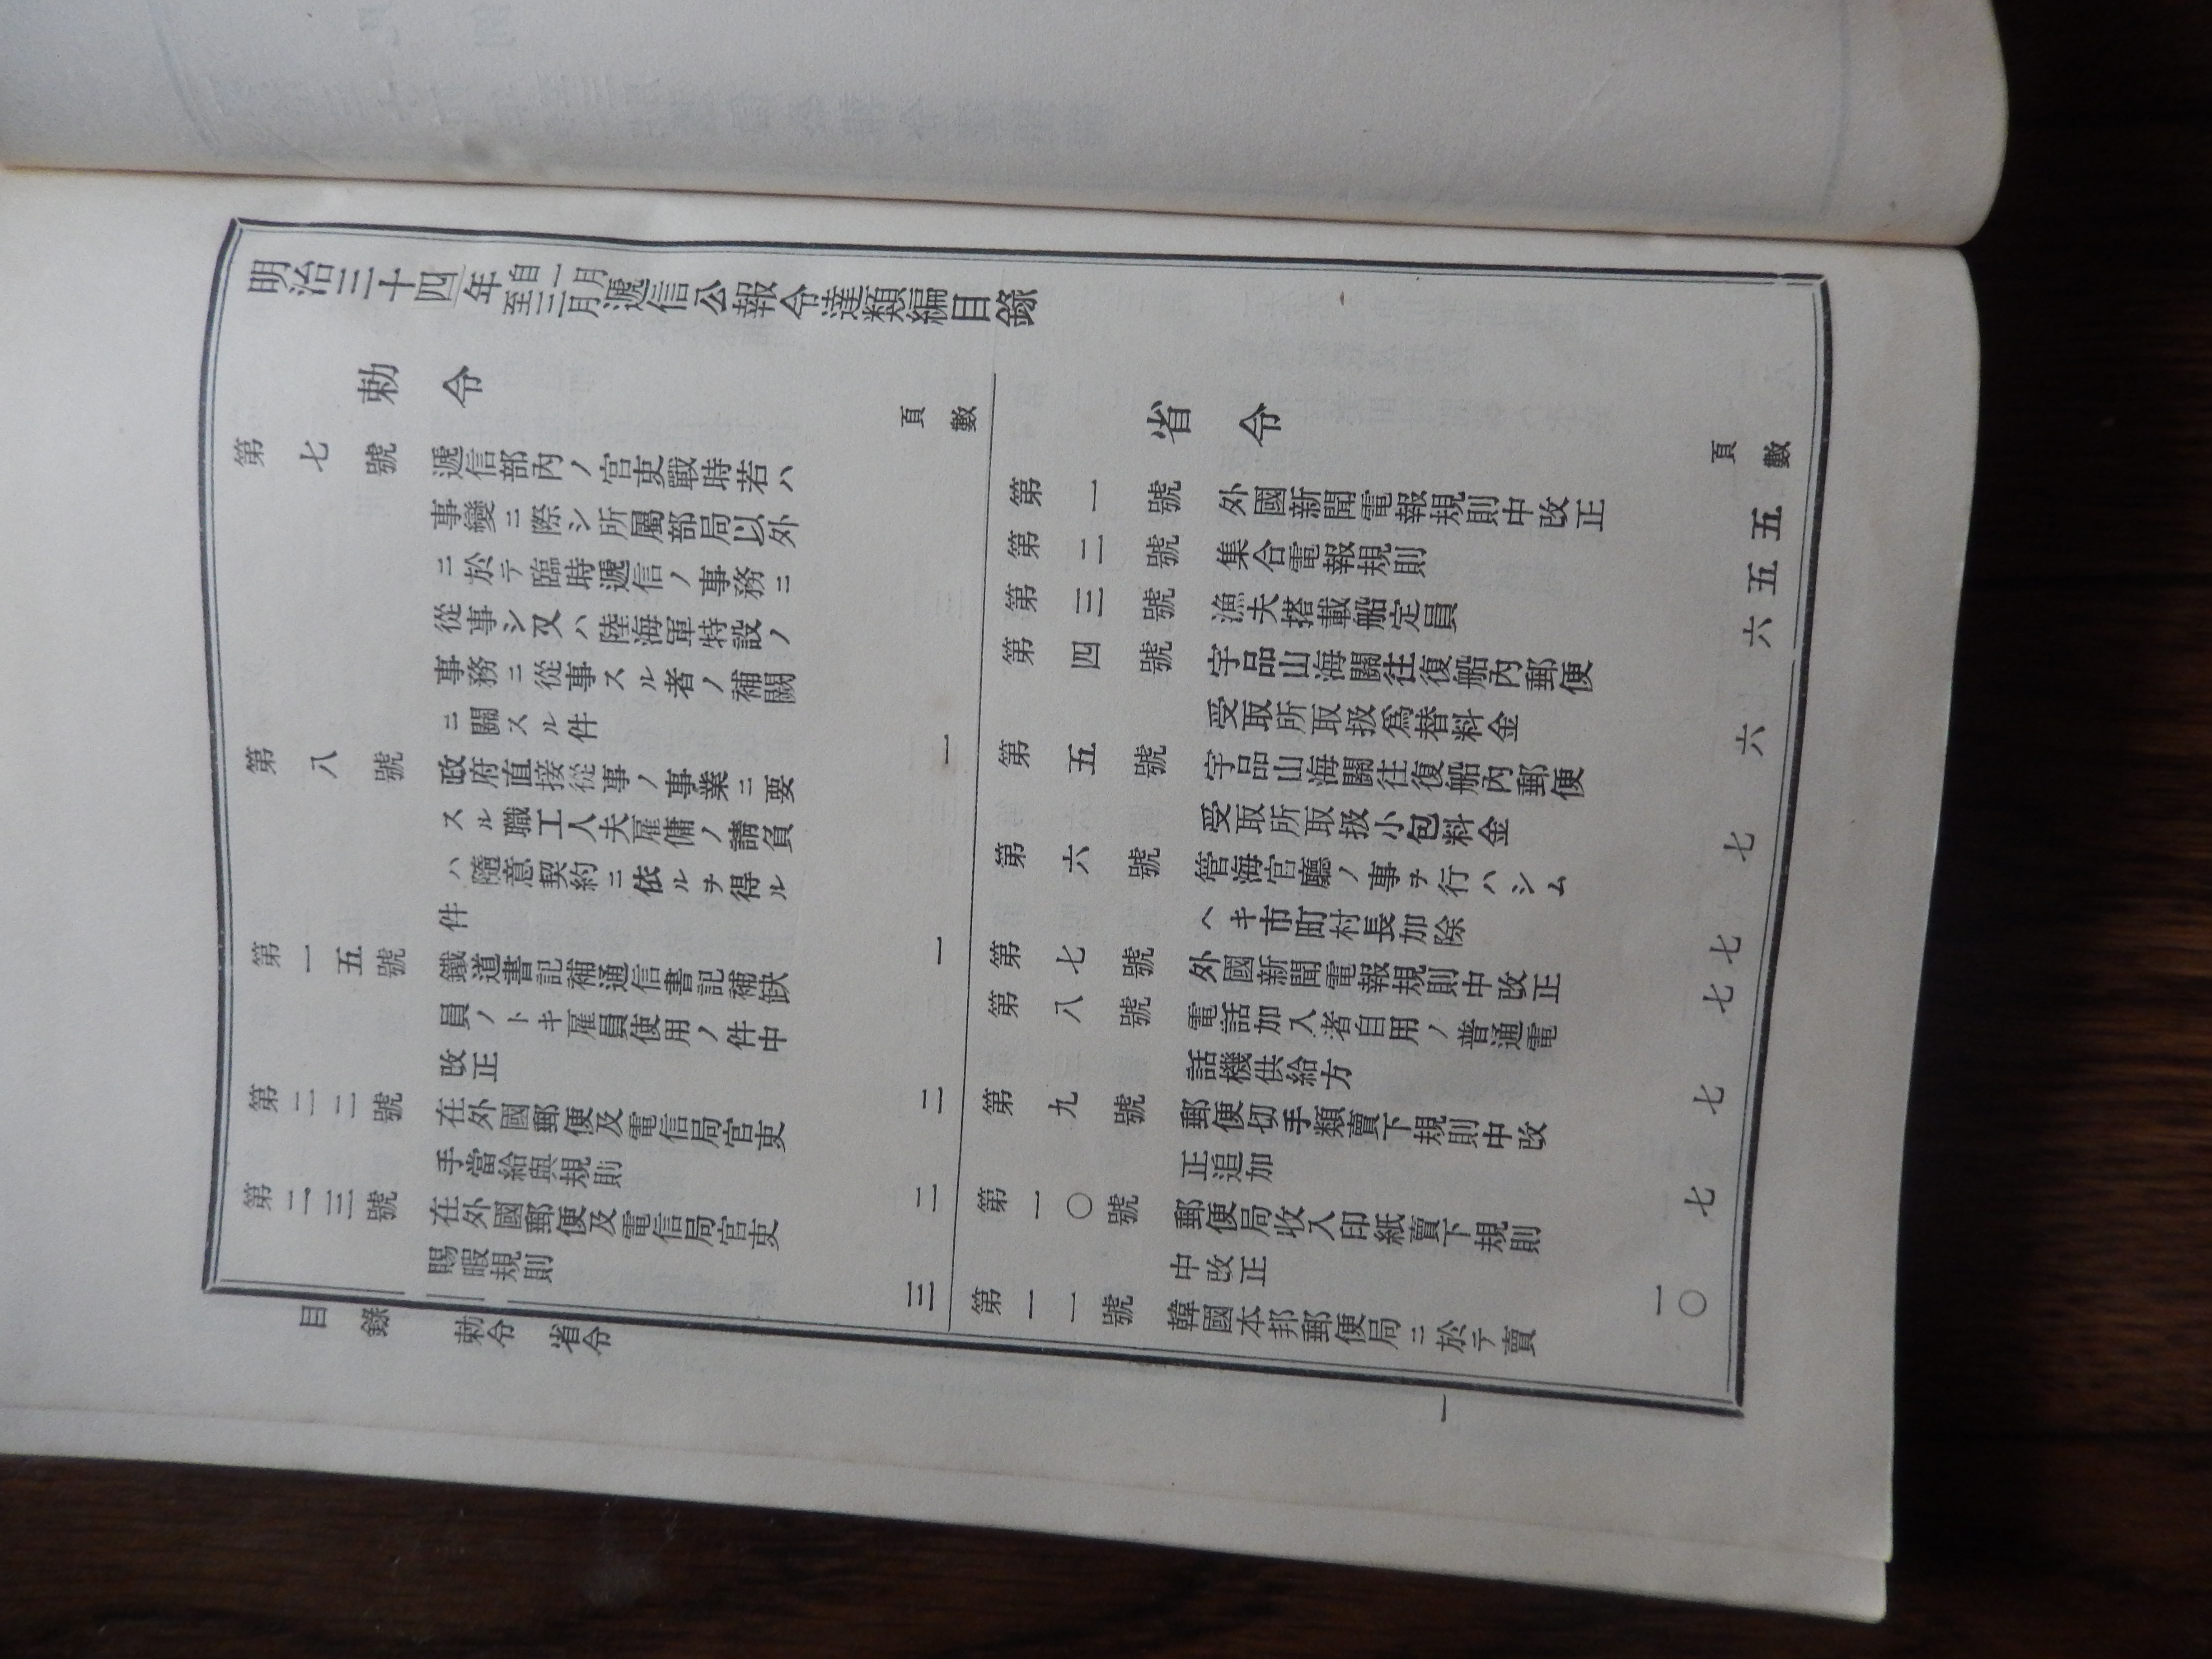 明治三十四年自一月至三月遞信公報令達類編目錄
勅令
頁數
第七號 遞信部內ノ官吏戰時若ハ
事變ニ際シ所屬部局以外
ニ於テ臨時遞信ノ事務ニ
從事シ又ハ陸海軍特設ノ
事務ニ從事スル者ノ補闕
ニ關スル件 一
第八號 政府直接從事ノ事業ニ要
スル職工人夫雇傭ノ請負
ハ隨意契約ニ依ルヲ得ル
件 一
第一五號 鐵道書記補通信書記補缺
員ノトキ雇員使用ノ件中
改正 二
第二二號 在外國郵便及電信局官吏
手當給與規則 二
第二三號 在外國郵便及電信局官吏
賜暇規則 三
省令
頁數
第一號 外國新聞電報規則中改正 五
第二號 集合電報規則 五
第三號 漁夫搭載船定員 六
第四號 宇品山海關往復船內郵便
受取所取扱爲替料金 六
第五號 宇品山海關往復船內郵便
受取所取扱小包料金 七
第六號 管海官廳ノ事ヲ行ハシム
ヘキ市町村長加除 七
第七號 外國新聞電報規則中改正 七
第八號 電話加入者自用ノ普通電
話機供給方 七
第九號 郵便切手類賣下規則中改
正追加 七
第一〇號 郵便局收入印紙賣下規則
中改正 一〇
第一一號 韓國本邦郵便局ニ於テ賣
目錄 勅令 省令
一